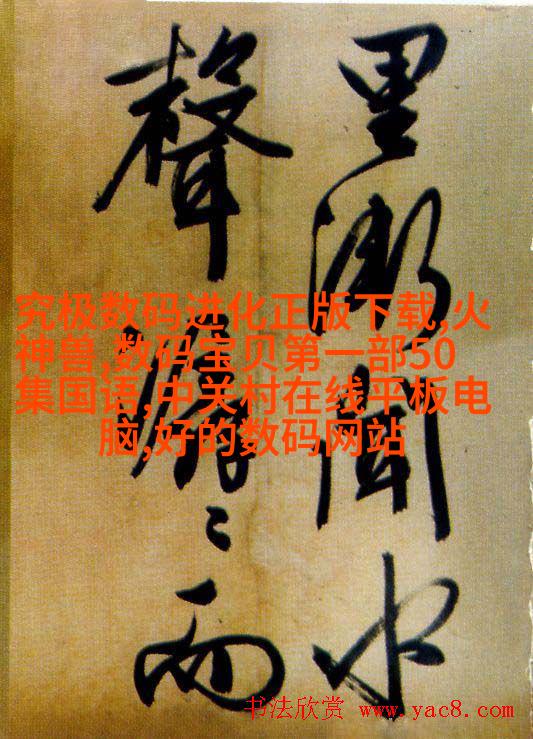 里漸聞水
聲潺〻而
究极数码进化正版下载,火
神兽,数码宝贝第一部50
集国语,中关村在线平板电
脑,好的数码网站
书法欣赏 www.yac8.com